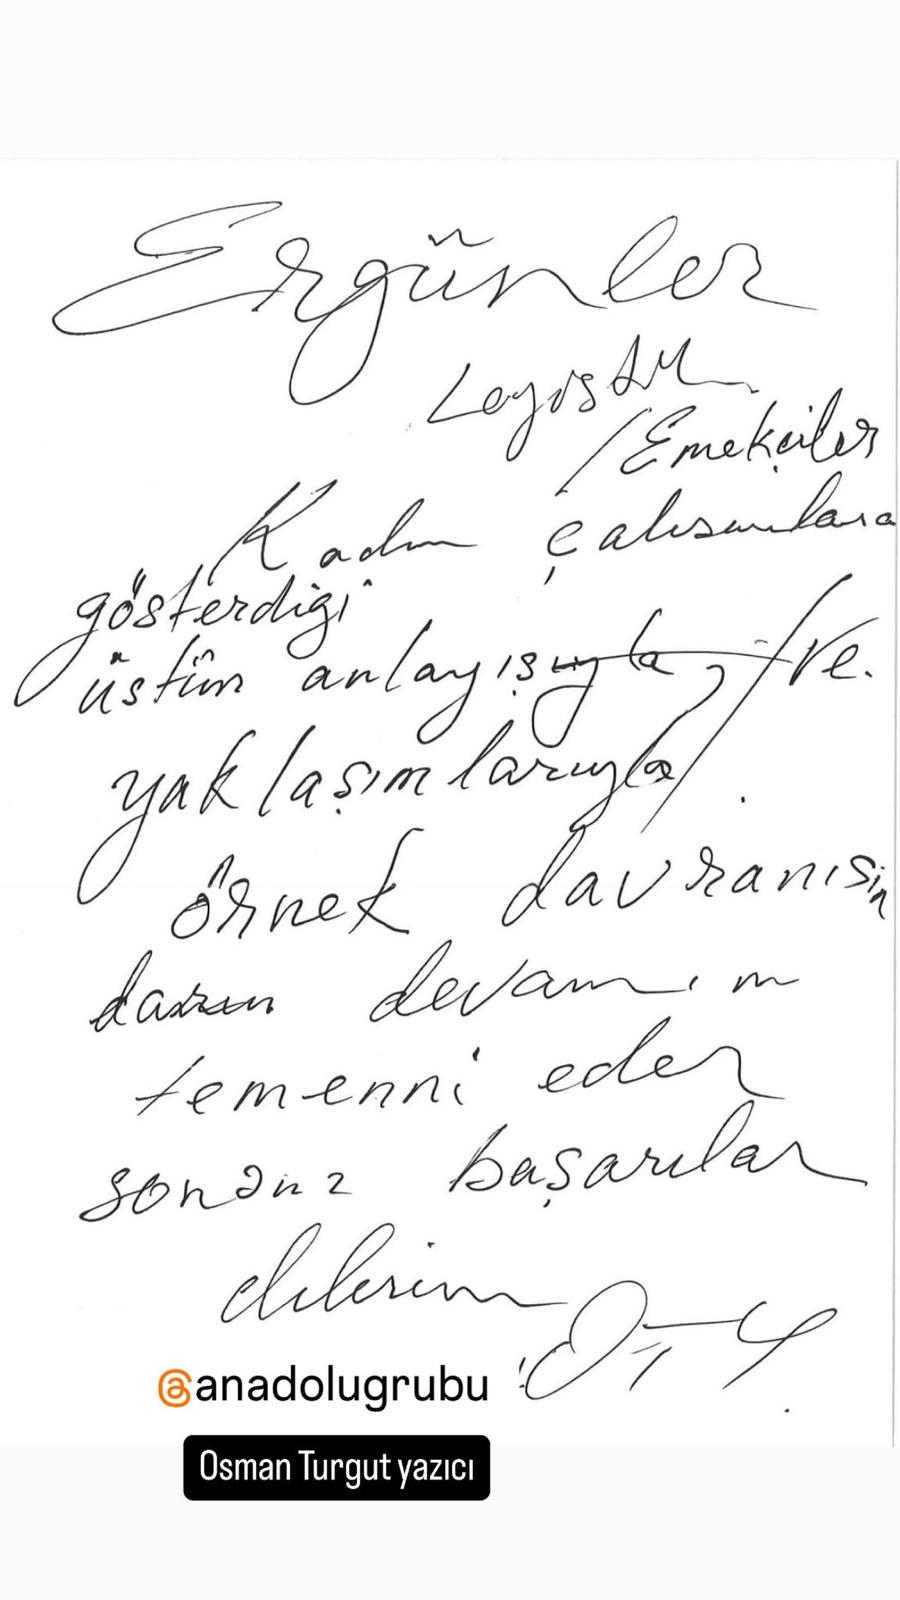 Ergünler
Lojistik
/ Emekçiler
Kadın çalışanlara
gösterdiği
üstün anlayışıyla, / ve.
yaklaşımlarıyla
örnek davranışın
devamın
temenni eder
sonsuz başarılar
dilerim
O.T.Y.
@anadolugrubu
Osman Turgut yazıcı